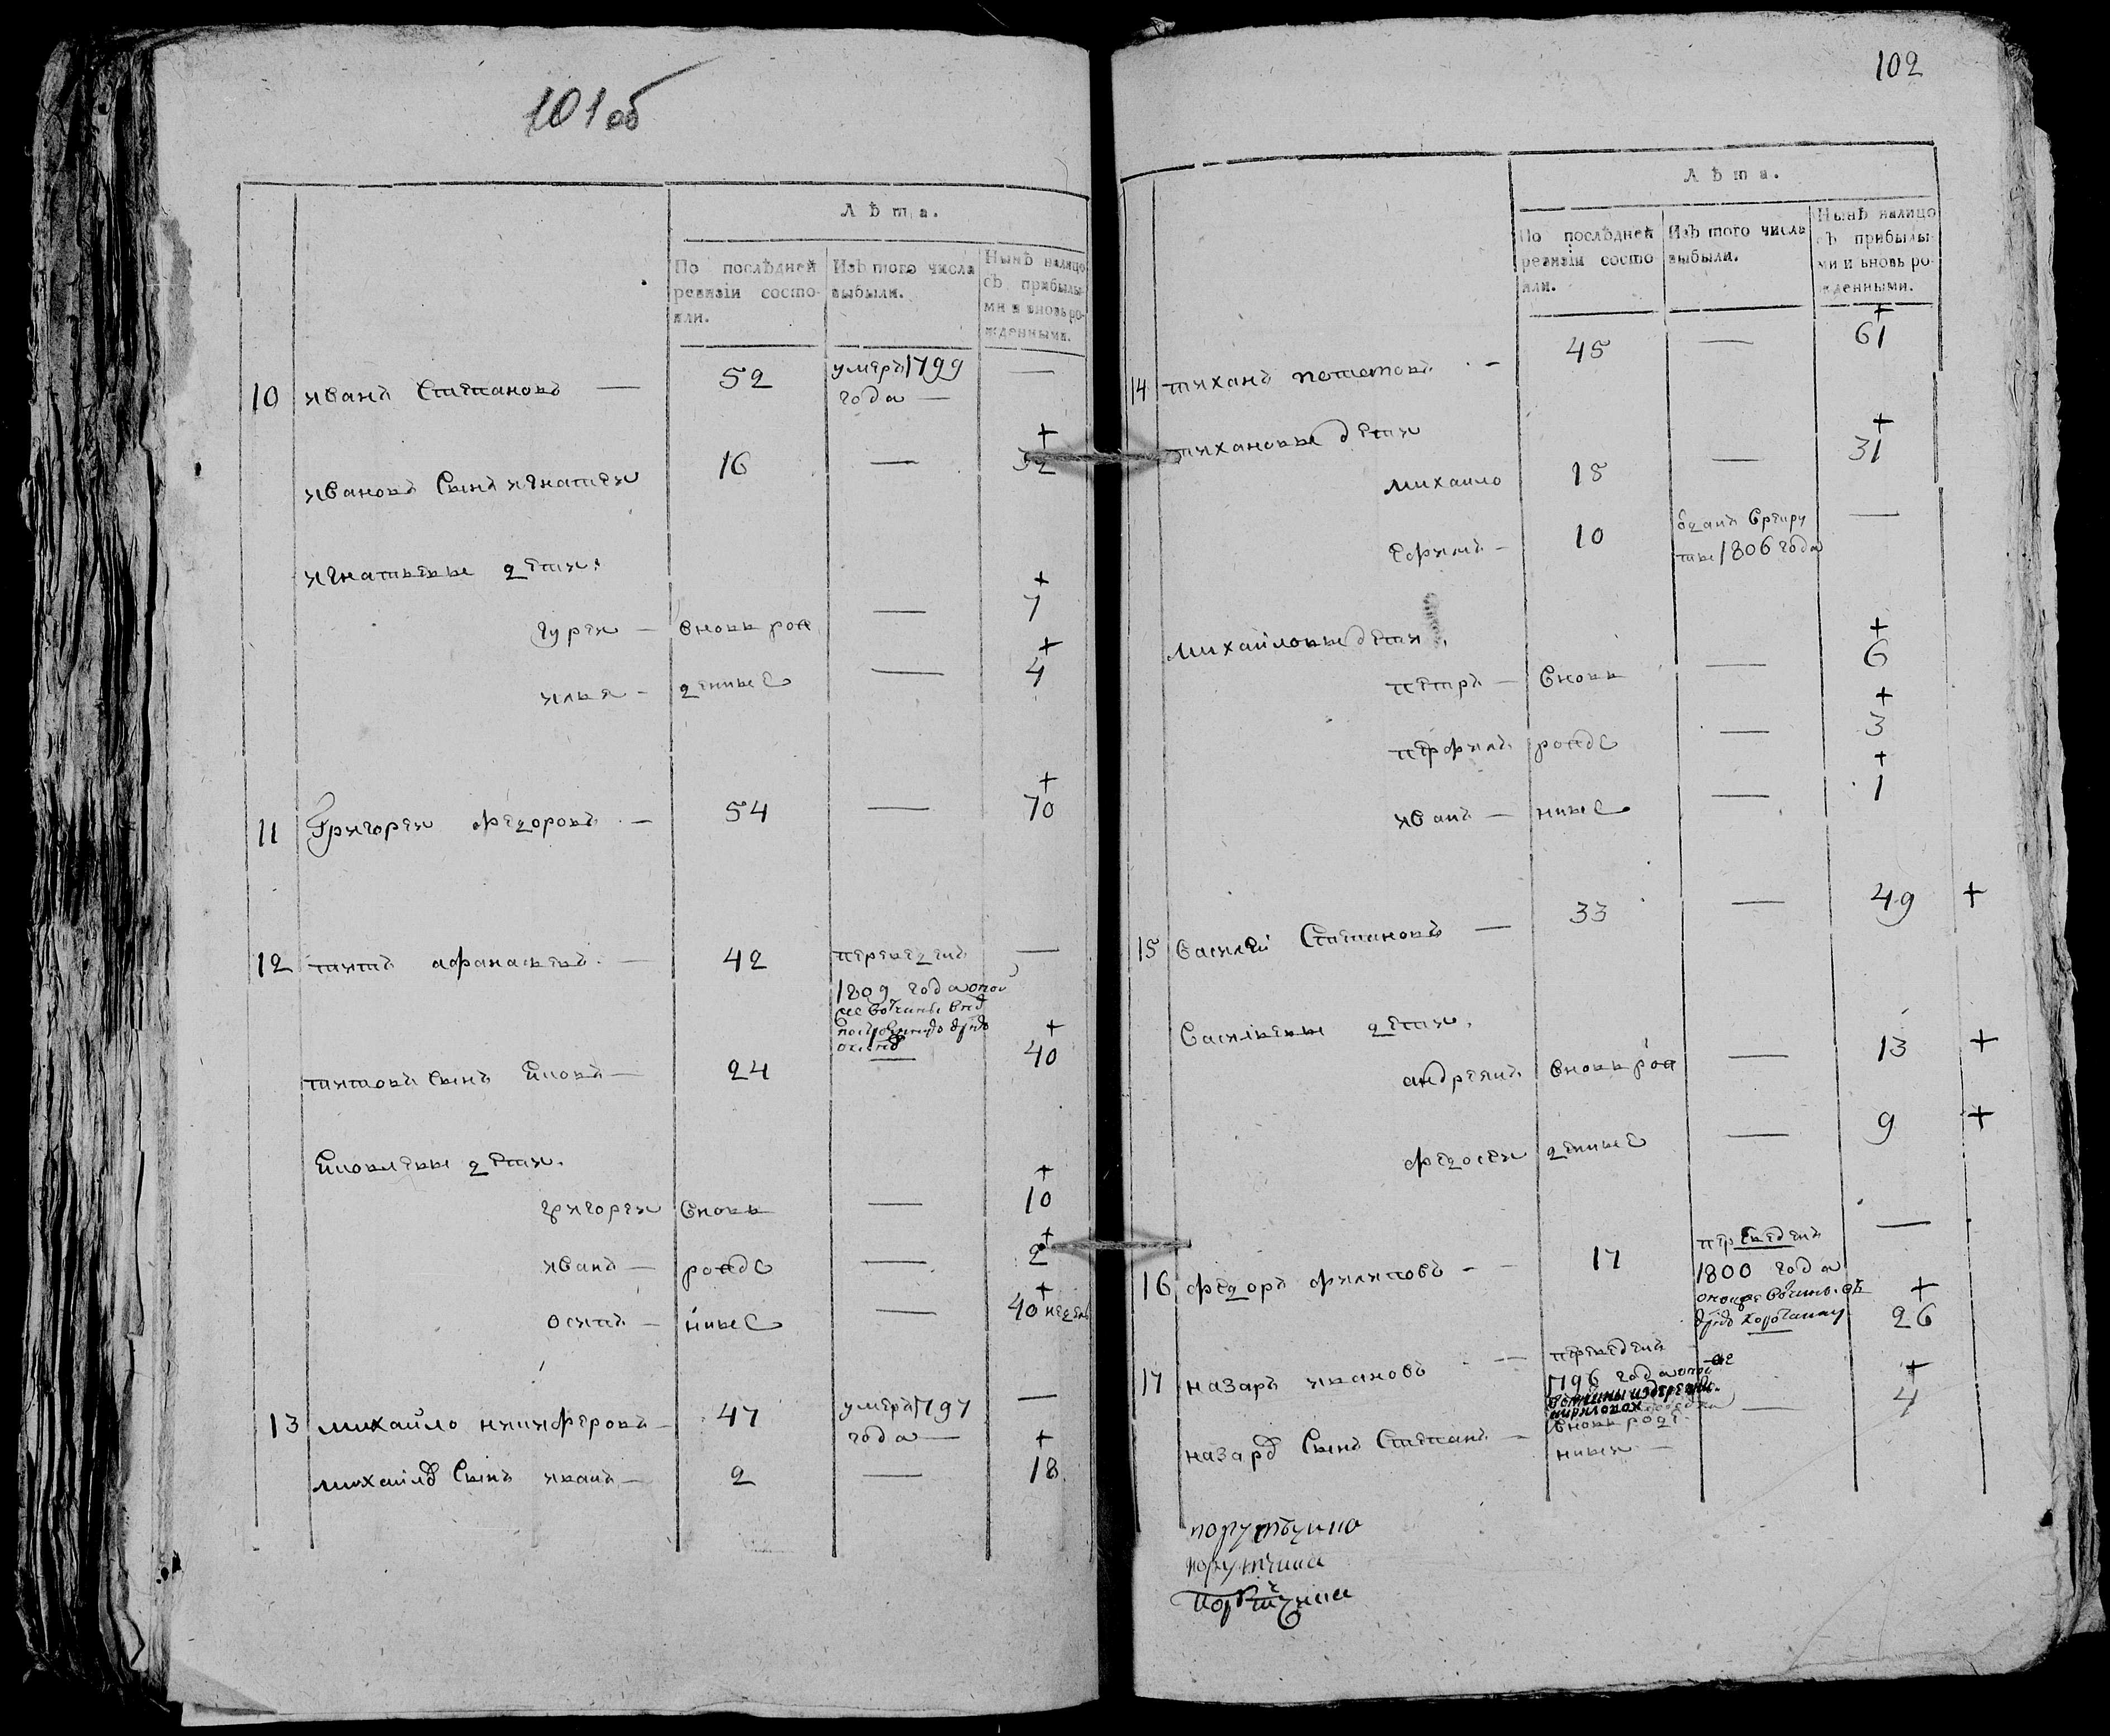 101 об
Лѣта.
По послѣдней ревизіи состояли.
Изъ того числа выбыли.
Нынѣ налицо съ прибылыми и вновь рожденными.
10 иванъ Степановъ — 52 умеръ 1799 года — —
ивановъ Сынъ игнатеи 16 — + 32
игнатьевы дети:
гуреи — вновь рож — + 7
илья — денные — + 4
11 Григореи федоровъ — 54 — + 70
12 титъ афанасьевъ — 42 переведенъ 1809 года —
титовъ сынъ Иовъ — 24 — + 40
Иовлевы дети.
григореи вновь — + 10
иванъ — рожде — + 2
осипъ — нные — + 40 недель
13 михайло никифоровъ — 47 умеръ 1797 года — —
михайлъ Сынъ иванъ — 2 — + 18
102
Лѣта.
По послѣдней ревизіи состояли.
Изъ того числа выбыли.
Нынѣ налицо съ прибылыми и вновь рожденными.
14 тиханъ — 45 — + 61
тихановы дети
михайло 15 — + 31
Ефимъ — 10 отданъВрекруты 1806 года —
михайловы дети.
петръ — вновь — + 6
перфилъ рожде — + 3
иванъ — нные — + 1
15 Василей Степановъ — 33 — 49 +
Васильевы дети.
андреянъ вновь рож — 13 +
федосеи денные — 9 +
16 федоръ филиповъ — 17 переведенъ 1800 года —
17 назаръ ивановъ — переведенъ 1796 года + 26
назаръ Сынъ Степанъ — вновь роде нныи — — + 4
порутчика
порутчика